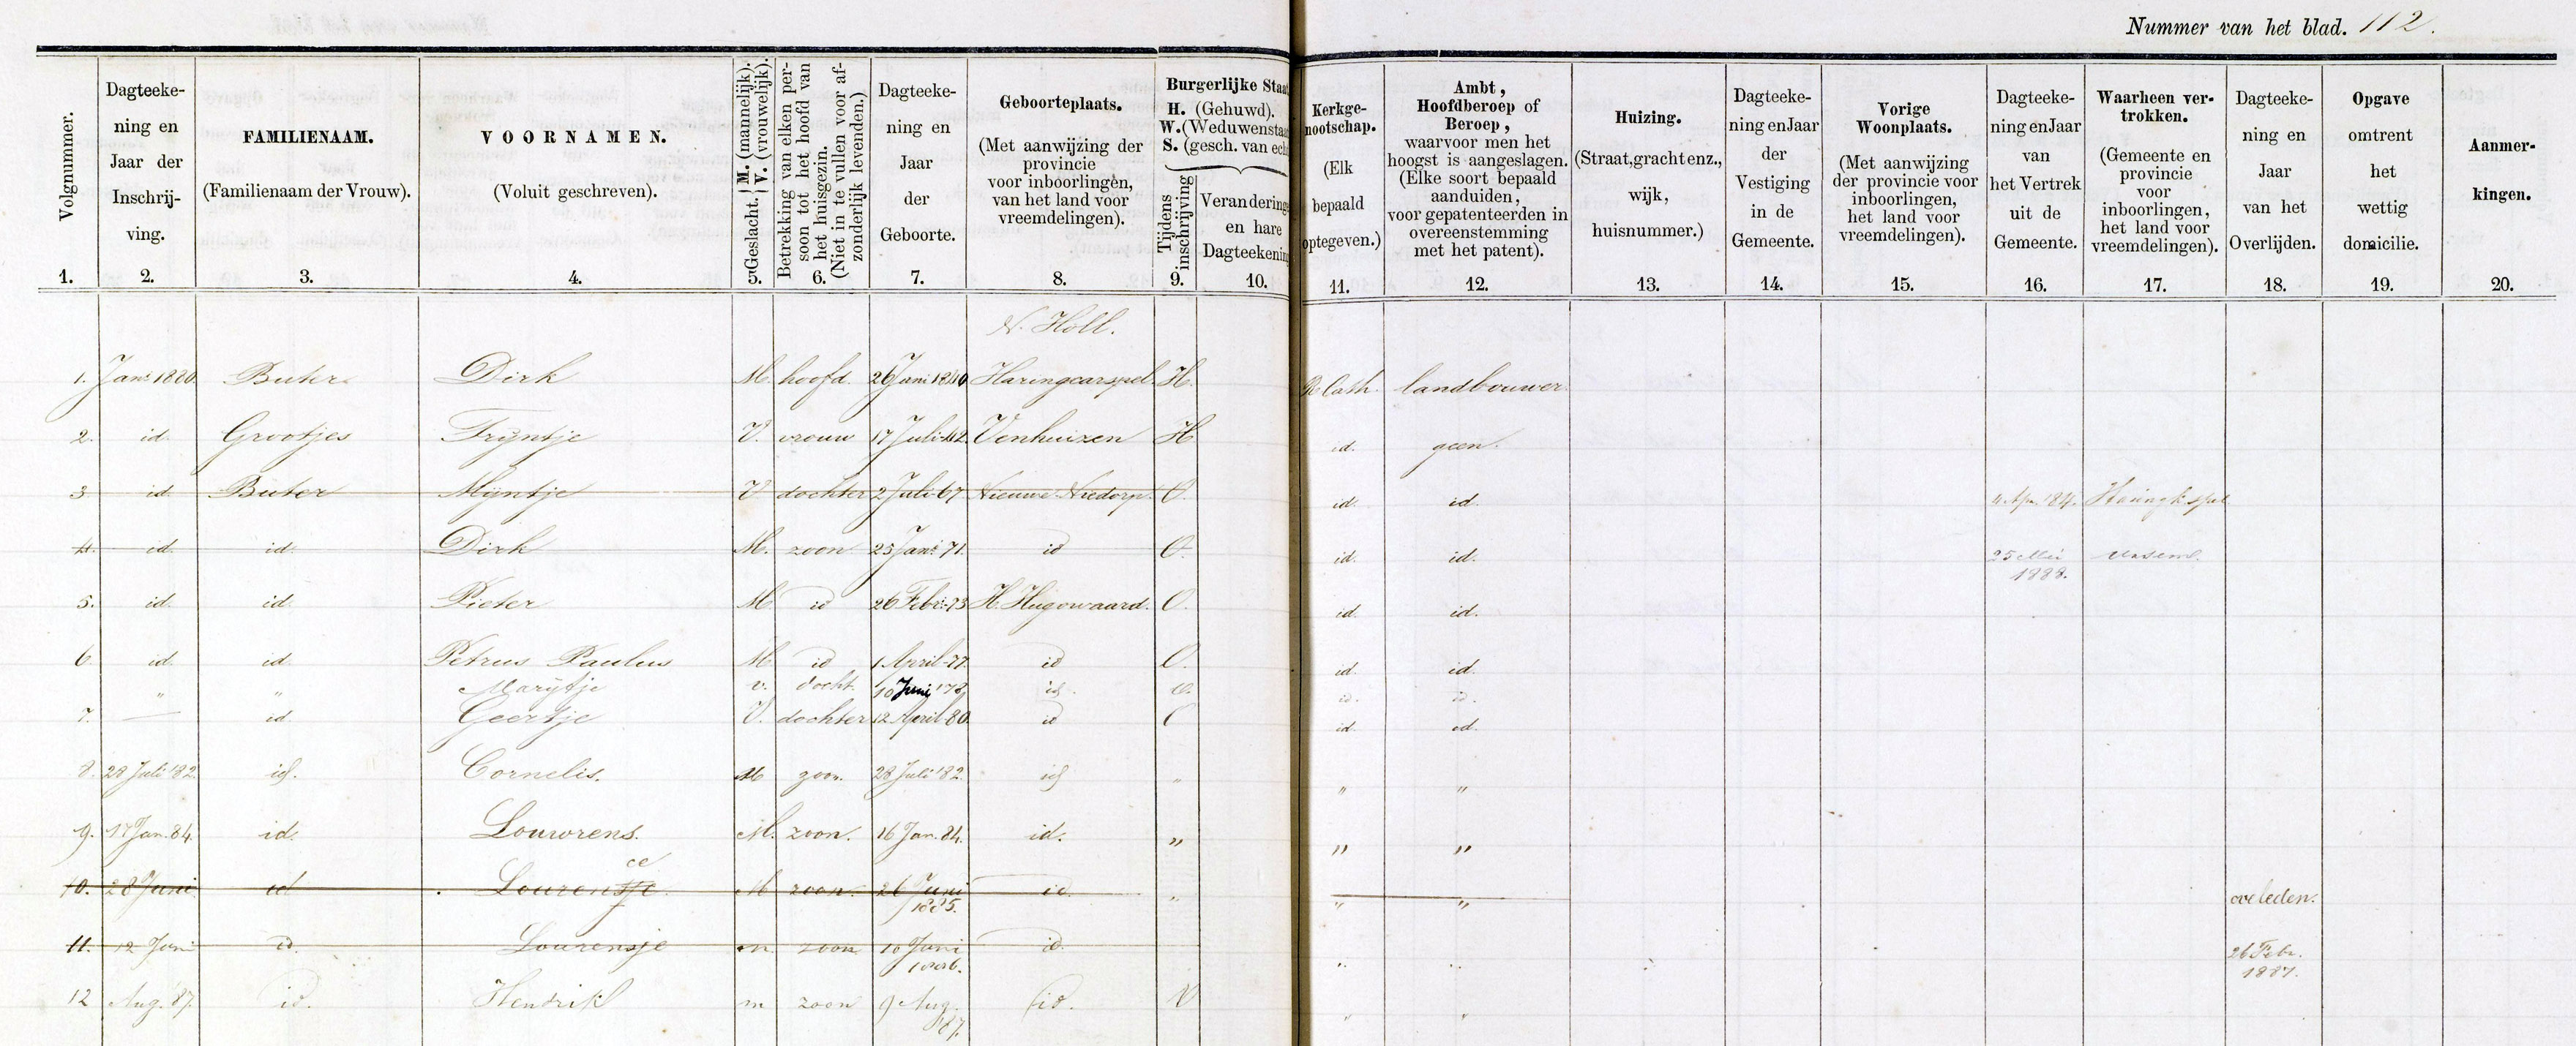 Nummer van het blad. 112.
Volgnummer.
1.
Dagteeke-
ning en
Jaar der
Inschrij-
ving.
2.
FAMILIENAAM.
(Familienaam der Vrouw).
3.
VOORNAMEN.
(Voluit geschreven).
4.
Geslacht. { M. (mannelijk). V. (vrouwelijk).
5.
Betrekking van elken per-
soon tot het hoofd van
het huisgezin.
(Niet in te vullen voor af-
zonderlijk levenden.)
6.
Dagteeke-
ning en
Jaar
der
Geboorte.
7.
Geboorteplaats.
(Met aanwijzing der
provincie
voor inboorlingen,
van het land voor
vreemdelingen).
8.
Burgerlijke Staat
H. (Gehuwd).
W. (Weduwenstaat
S. (gesch. van ech
Tijdens
inschrijving
9.
Veranderinge
en hare
Dagteekening
10.
Kerkge-
nootschap.
(Elk
bepaald
optegeven.)
11.
Ambt,
Hoofdberoep of
Beroep,
waarvoor men het
hoogst is aangeslagen.
(Elke soort bepaald
aanduiden,
voor gepatenteerden in
overeenstemming
met het patent).
12.
Huizing.
(Straat, gracht enz.,
wijk,
huisnummer.)
13.
Dagteeke-
ning en Jaar
der
Vestiging
in de
Gemeente.
14.
Vorige
Woonplaats.
(Met aanwijzing
der provincie voor
inboorlingen,
het land voor
vreemdelingen).
15.
Dagteeke-
ning en Jaar
van
het Vertrek
uit de
Gemeente.
16.
Waarheen ver-
trokken.
(Gemeente en
provincie
voor
inboorlingen,
het land voor
vreemdelingen).
17.
Dagteeke-
ning en
Jaar
van het
Overlijden.
18.
Opgave
omtrent
het
wettig
domicilie.
19.
Aanmer-
kingen.
20.
N. Holl.
1. Jani 1880. Buter Dirk M. hoofd. 26 Juni 1840 Haringcarspel. H. R. Cath. landbouwer.
2. id. Grootjes Trijntje V. vrouw 17 Juli 42. Venhuizen H id. geen.
3 id. Buter Mijntje V dochter 2 Juli 67. Nieuwe Niedorp. O. id. id.
4. id. id. Dirk M. zoon 25 Jani 71. id O. id. id. 25 Mei
1888.
5. id. id. Pieter M. id 26 Febri 73 H. Hugowaard. O. id. id.
6 id. id. Petrus Paulus M. id 1 April 77. id O. id. id.
" " Marijtje v. docht. 10 Juni '78 id. O. id. id.
7. — id. Geertje V. dochter 12 April 80. id O id. id.
8. 28 Juli '82. id. Cornelis. M zoon. 28 Juli '82. id " " "
9. 17 Jan. 84. id. Louwrens. M. zoon. 16 Jan. 84. id. " " "
ce
10. 28 Juni id Lourensje. M zoon. 26 Juni id. " " " overleden.
1885.
11. 12 Juni id. Lourensje m. zoon 10 Juni id. " " 26 Febr.
1886. 1887.
12 Aug. '87. id. Hendrik m zoon 9 Aug. id. " "
'87.